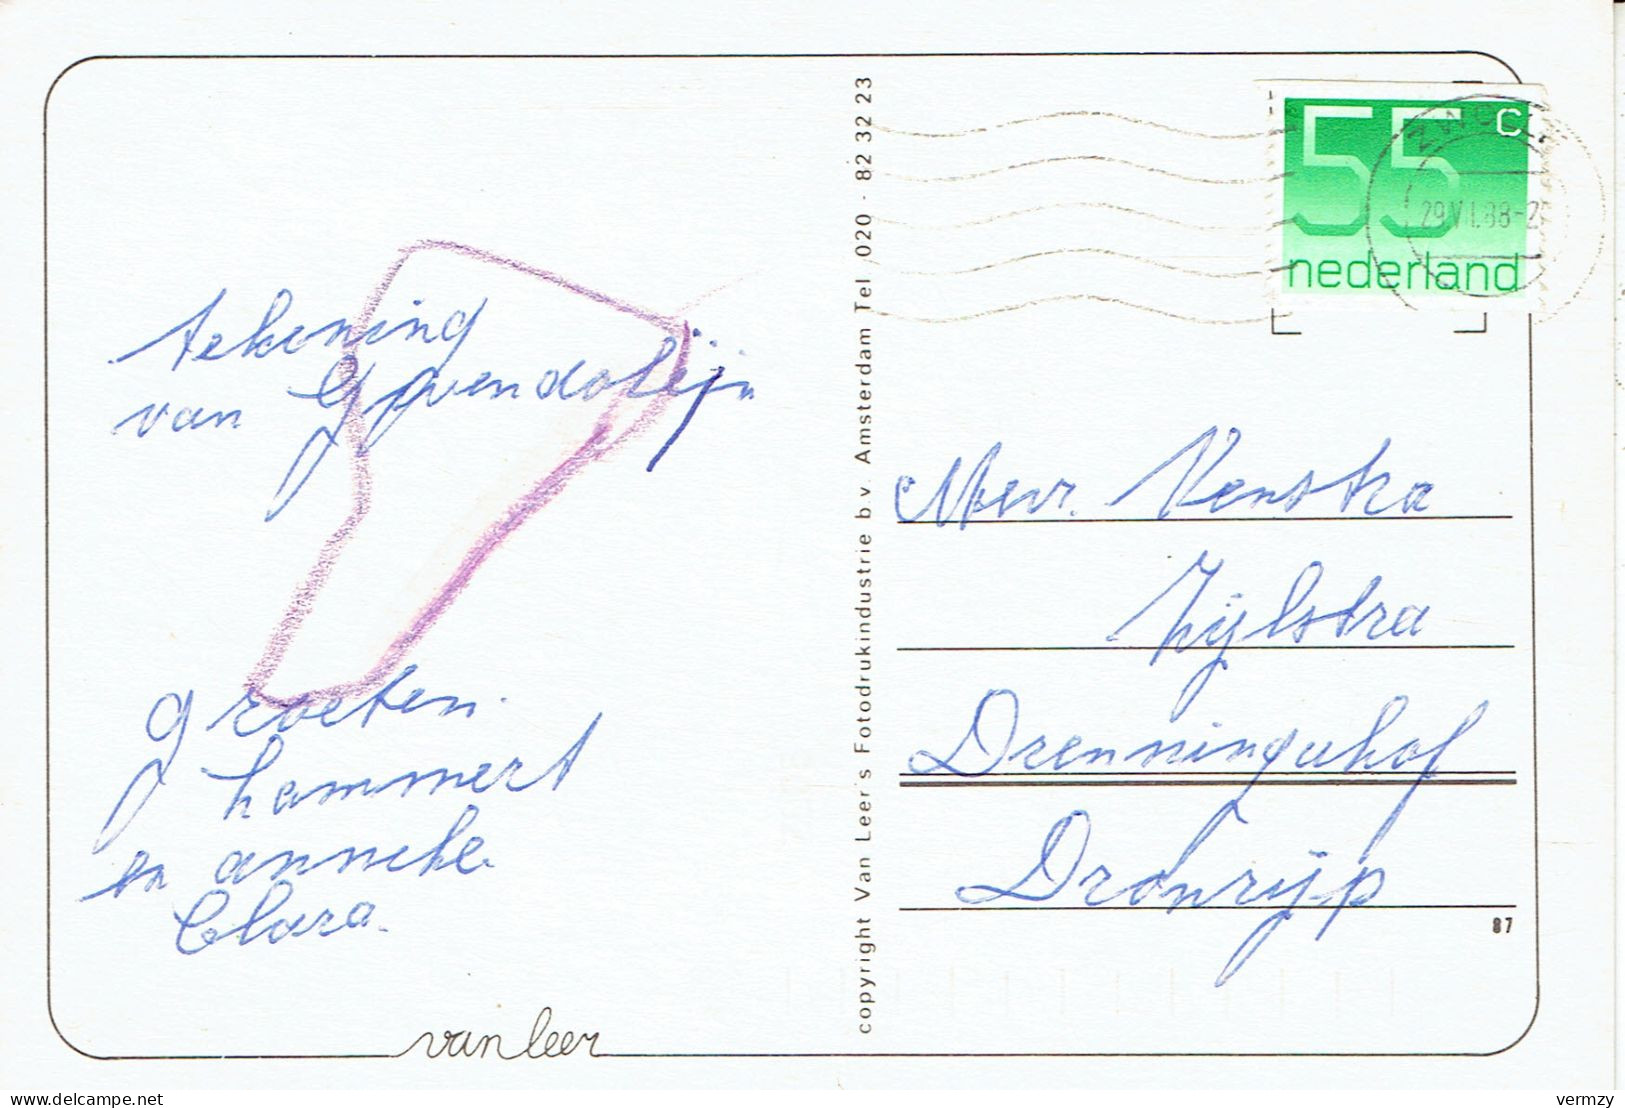 tekening
van Gwendolijn
groeten.
hammert
en anneke.
Clara.
van leer
copyright Van Leer's Fotodrukindustrie b.v. Amsterdam Tel 020 - 82 32 23
55 c
nederland
29.VII.88-2
Mevr. Venstra
Zijlstra
Drenningahof
Dronrijp
87
www.delcampe.net
vermzy